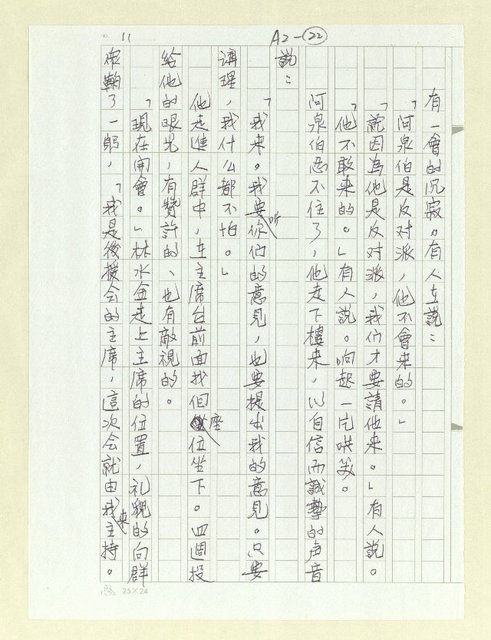 11
A2-㉒
有一會的沉寂。有人在說：
「阿泉伯是反对派，他不會來的。」
「就因為他是反对派，我們才要請他來。」有人說。
「他不敢來的。」有人說。响起一片哄笑。
阿泉伯忍不住了，他走下樓來，以自信而誠摯的声音
說：
「我來。我要听你們的意見，也要提出我的意見。只要
講理，我什么都不怕。」
他走進人群中，在主席台前面找個座位坐下。四週投
給他的眼光，有贊許的、也有敵視的。
「現在開會。」林水金走上主席的位置，礼貌的向群
衆鞠了一躬，「我是後援会的主席，這次会就由我來主持。
25×24